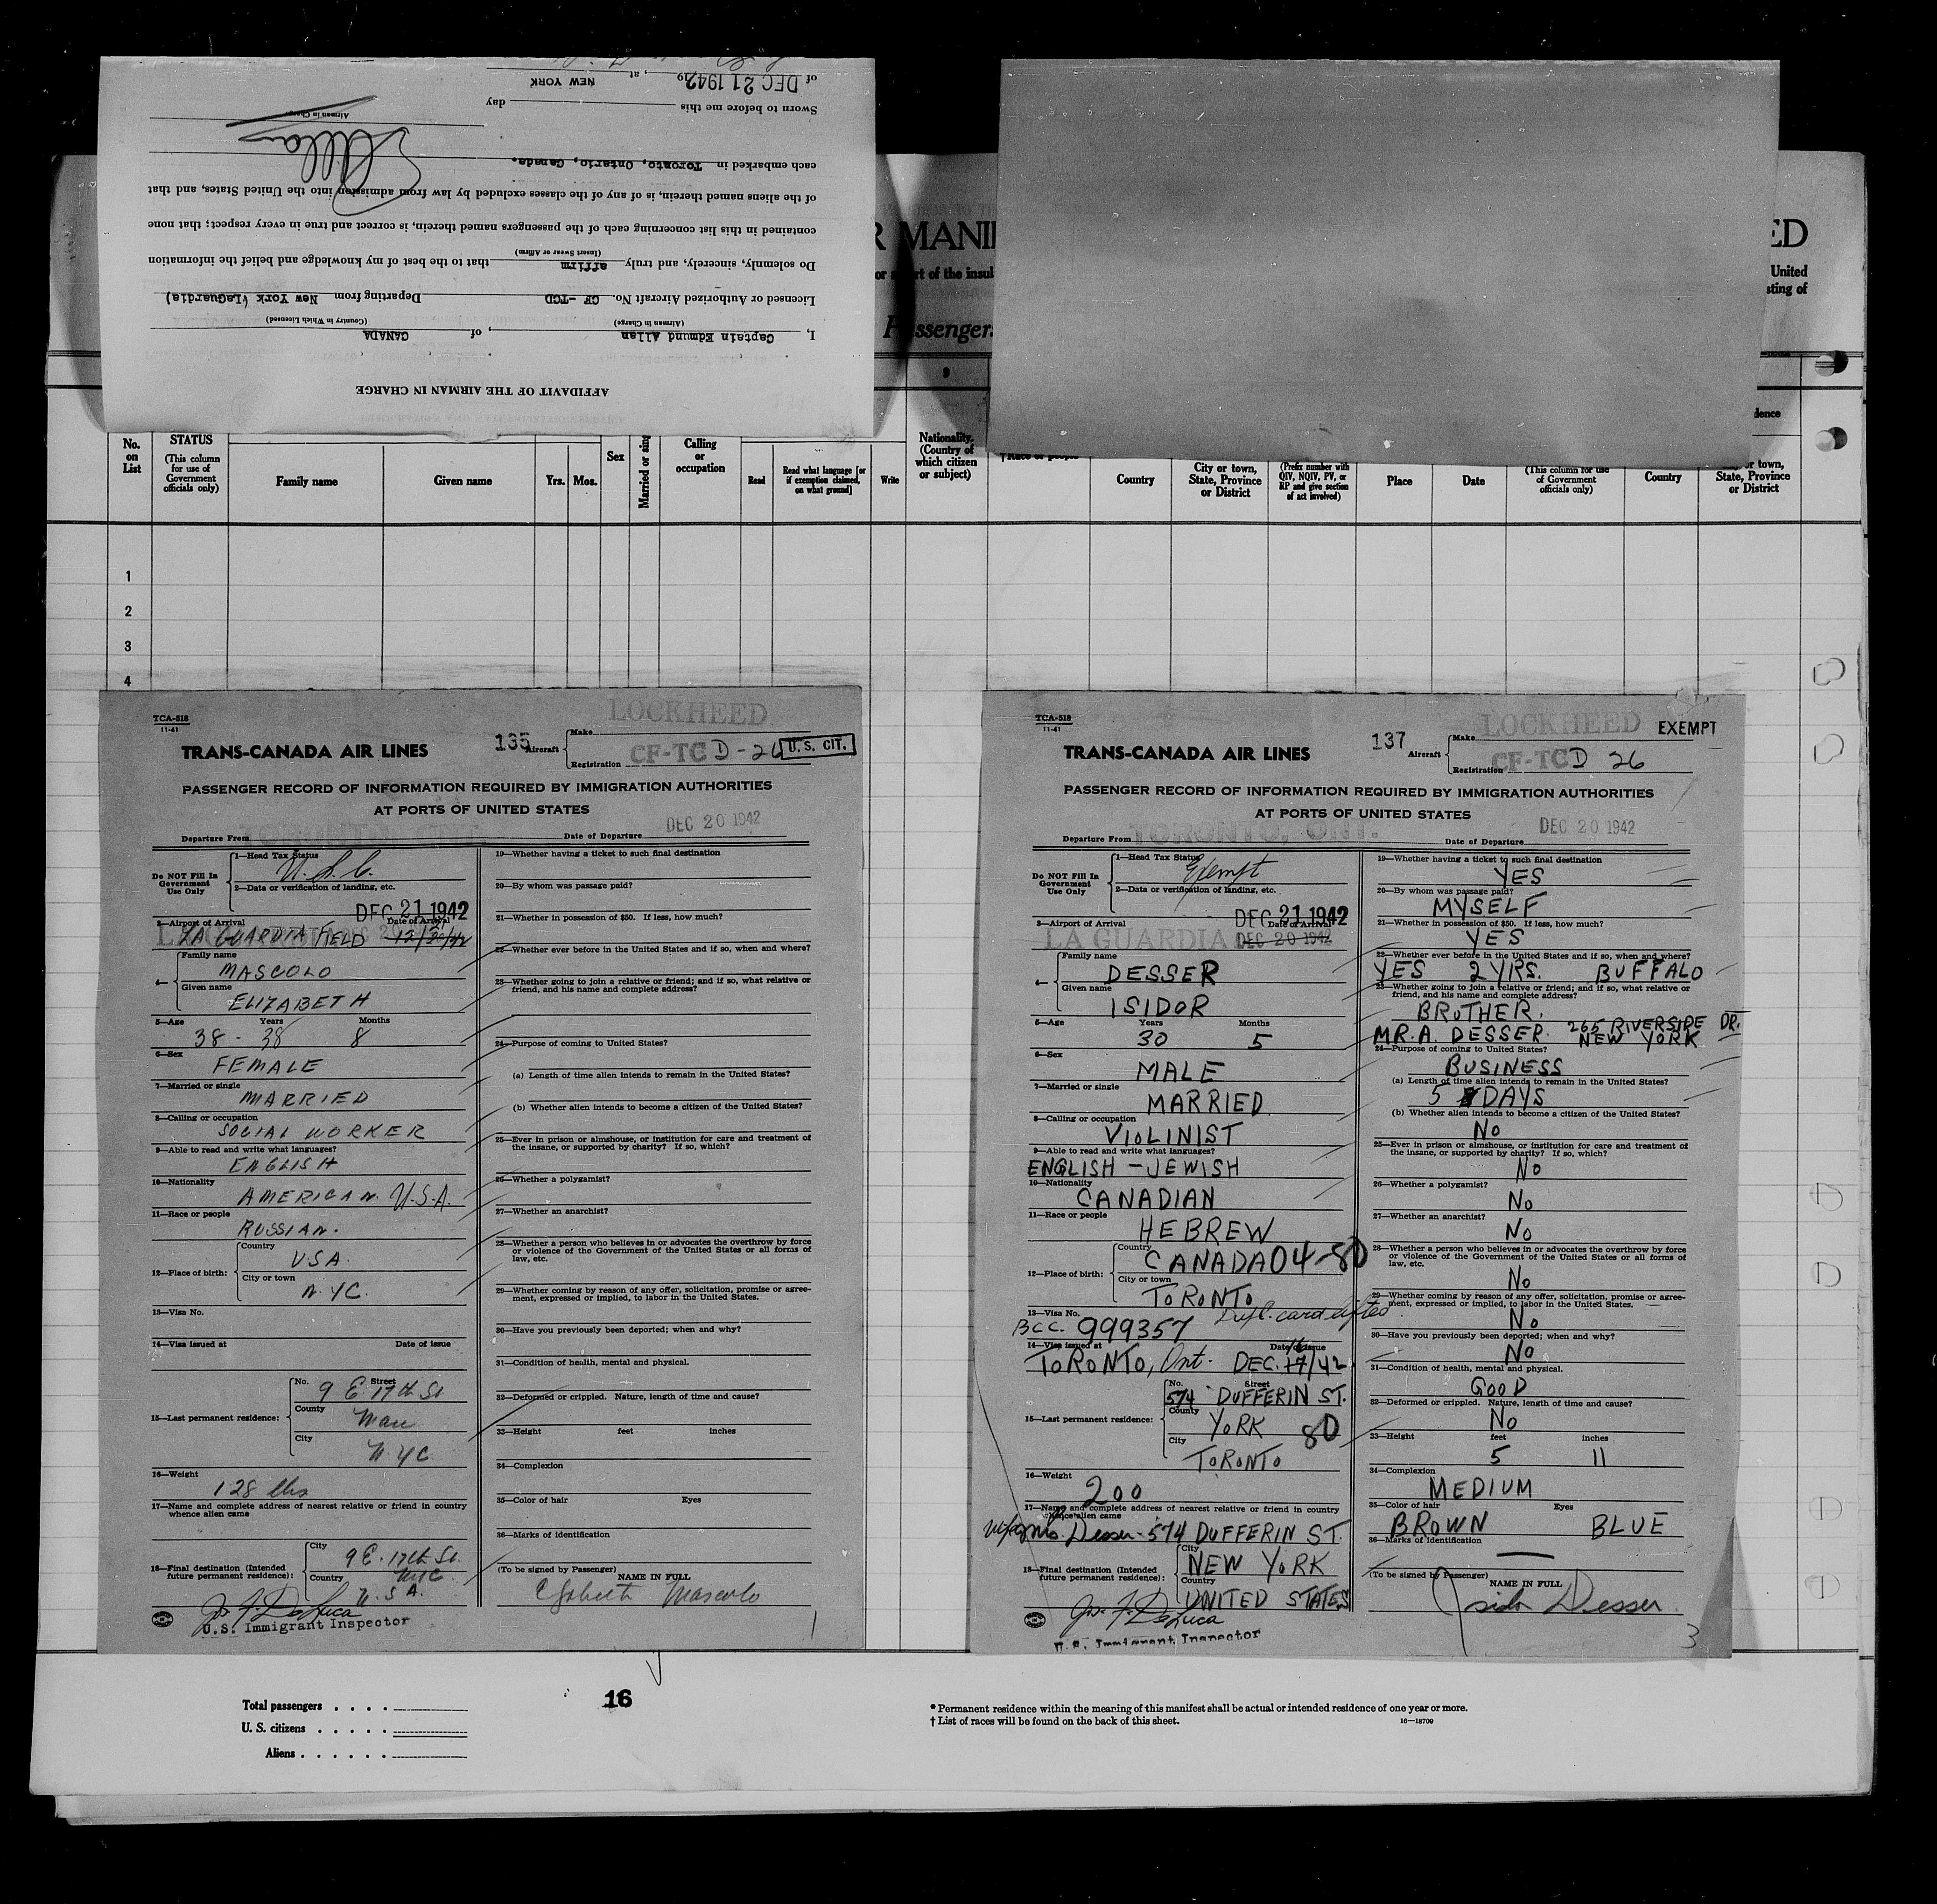 AFFIDAVIT OF THE AIRMAN IN CHARGE
I, Captain Edmund Allan, of CANADA
(Airman in Charge) (Country in Which Licensed)
Licensed or Authorized Aircraft No. CF-TCD Departing from New York (LaGuardia)
Do solemnly, sincerely, and truly affirm that to the best of my knowledge and belief the information
(Insert Swear or Affirm)
contained in this list concerning each of the passengers named therein, is correct and true in every respect; that none
of the aliens named therein, is of any of the classes excluded by law from admission into the United States, and that
each embarked in Toronto, Ontario, Canada.
Airman in Charge
Sworn to before me this day
of DEC 21 1942 19 , at NEW YORK
R MANI
ED
or a part of the insul
United
sting of
Passengers
9
dence
No. on List
STATUS
(This column for use of Government officials only)
Family name
Given name
Yrs.
Mos.
Sex
Married or sing
Calling or occupation
Read
Read what language [or if exemption claimed, on what ground]
Write
Nationality. (Country of which citizen or subject)
† Race or people
Country
City or town, State, Province or District
(Prefix number with QIV, NQIV, PV, or RP and give section of act involved)
Place
Date
(This column for use of Government officials only)
Country
or town, State, Province or District
1
2
3
4
TCA-518
11-41
LOCKHEED
TRANS-CANADA AIR LINES
135
Aircraft
Make
Registration CF-TC D-26
U.S. CIT.
PASSENGER RECORD OF INFORMATION REQUIRED BY IMMIGRATION AUTHORITIES
AT PORTS OF UNITED STATES
Departure From TORONTO, ONT. Date of Departure DEC 20 1942
Do NOT Fill In Government Use Only
1—Head Tax Status U.S.C.
2—Data or verification of landing, etc.
DEC 21 1942
3—Airport of Arrival Date of Arrival
LA GUARDIA FIELD 12/20/42
4— Family name
MASCOLO
Given name
ELIZABETH
5—Age Years Months
38 - 38 8
6—Sex
FEMALE
7—Married or single
MARRIED
8—Calling or occupation
SOCIAL WORKER
9—Able to read and write what languages?
ENGLISH
10—Nationality
AMERICAN. U.S.A.
11—Race or people
RUSSIAN.
12—Place of birth: Country
USA
City or town
N.Y.C.
13—Visa No.
14—Visa issued at Date of issue
15—Last permanent residence: No. Street
9 E 17th St
County
Man
City
N.Y.C.
16—Weight
128 lbs
17—Name and complete address of nearest relative or friend in country whence alien came
18—Final destination (Intended future permanent residence): City
9 E. 17th St.
NYC
Country
U.S.A.
Jos. F. DeLuca
U.S. Immigrant Inspector
19—Whether having a ticket to such final destination
20—By whom was passage paid?
21—Whether in possession of $50. If less, how much?
22—Whether ever before in the United States and if so, when and where?
23—Whether going to join a relative or friend; and if so, what relative or friend, and his name and complete address?
24—Purpose of coming to United States?
(a) Length of time alien intends to remain in the United States?
(b) Whether alien intends to become a citizen of the United States?
25—Ever in prison or almshouse, or institution for care and treatment of the insane, or supported by charity? If so, which?
26—Whether a polygamist?
27—Whether an anarchist?
28—Whether a person who believes in or advocates the overthrow by force or violence of the Government of the United States or all forms of law, etc.
29—Whether coming by reason of any offer, solicitation, promise or agreement, expressed or implied, to labor in the United States.
30—Have you previously been deported; when and why?
31—Condition of health, mental and physical.
32—Deformed or crippled. Nature, length of time and cause?
33—Height feet inches
34—Complexion
35—Color of hair Eyes
36—Marks of identification
(To be signed by Passenger) NAME IN FULL
Elizabeth Mascolo
1
TCA-518
11-41
LOCKHEED
EXEMPT
TRANS-CANADA AIR LINES
137
Aircraft
Make
Registration CF-TC D 26
PASSENGER RECORD OF INFORMATION REQUIRED BY IMMIGRATION AUTHORITIES
AT PORTS OF UNITED STATES
Departure From TORONTO, ONT. Date of Departure DEC 20 1942
Do NOT Fill In Government Use Only
1—Head Tax Status Exempt
2—Data or verification of landing, etc.
DEC 21 1942
3—Airport of Arrival Date of Arrival
LA GUARDIA DEC 20 1942
4— Family name
DESSER
Given name
ISIDOR
5—Age Years Months
30 5
6—Sex
MALE
7—Married or single
MARRIED
8—Calling or occupation
VIOLINIST
9—Able to read and write what languages?
ENGLISH - JEWISH
10—Nationality
CANADIAN
11—Race or people
HEBREW
12—Place of birth: Country
CANADA 04-80
City or town
TORONTO
13—Visa No. Dupl. card lifted
BCC. 999357
14—Visa issued at Date of issue
TORONTO, Ont. DEC. 17/42
15—Last permanent residence: No. Street
574 DUFFERIN ST.
County
YORK 80
City
TORONTO
16—Weight
200
17—Name and complete address of nearest relative or friend in country whence alien came
Wife Mrs. Desser - 574 DUFFERIN ST.
18—Final destination (Intended future permanent residence): City
NEW YORK
Country
UNITED STATES
Jos. F. DeLuca
U.S. Immigrant Inspector
19—Whether having a ticket to such final destination
YES
20—By whom was passage paid?
MYSELF
21—Whether in possession of $50. If less, how much?
YES
22—Whether ever before in the United States and if so, when and where?
YES 2 YRS. BUFFALO
23—Whether going to join a relative or friend; and if so, what relative or friend, and his name and complete address?
BROTHER.
MR. A. DESSER. 265 RIVERSIDE DR. NEW YORK
24—Purpose of coming to United States?
BUSINESS
(a) Length of time alien intends to remain in the United States?
5 DAYS
(b) Whether alien intends to become a citizen of the United States?
No
25—Ever in prison or almshouse, or institution for care and treatment of the insane, or supported by charity? If so, which?
No
26—Whether a polygamist?
No
27—Whether an anarchist?
No
28—Whether a person who believes in or advocates the overthrow by force or violence of the Government of the United States or all forms of law, etc.
No
29—Whether coming by reason of any offer, solicitation, promise or agreement, expressed or implied, to labor in the United States.
No
30—Have you previously been deported; when and why?
No
31—Condition of health, mental and physical.
GOOD
32—Deformed or crippled. Nature, length of time and cause?
No
33—Height feet inches
5 11
34—Complexion
MEDIUM
35—Color of hair Eyes
BROWN BLUE
36—Marks of identification
—
(To be signed by Passenger) NAME IN FULL
Isidor Desser
3
Total passengers . . . .
U. S. citizens . . . . .
Aliens . . . . . .
16
* Permanent residence within the meaning of this manifest shall be actual or intended residence of one year or more.
† List of races will be found on the back of this sheet.
16—18709